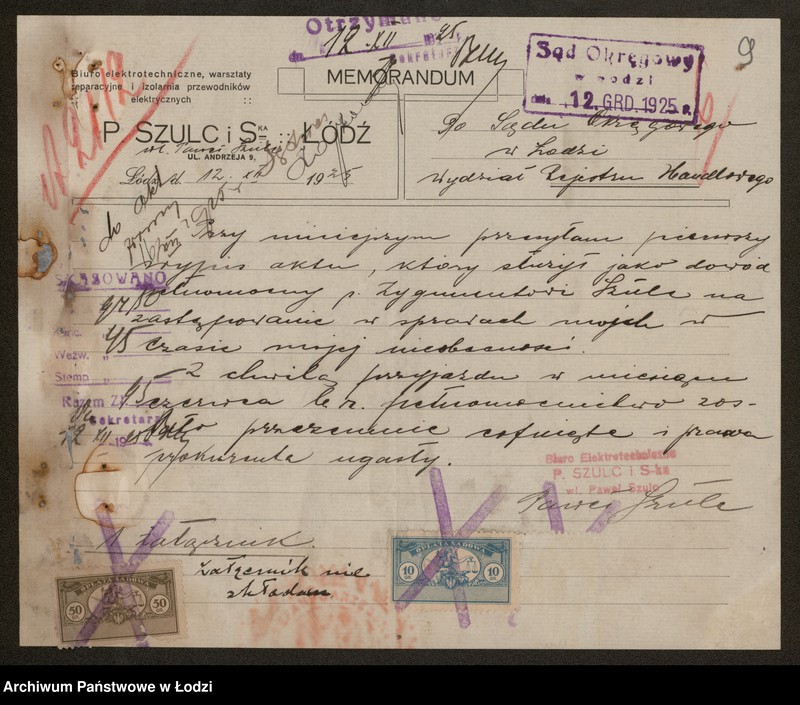 Otrzymano
dn. 12. XII 1925
Sekretarz
9
Sąd Okręgowy
w Łodzi
dnia 12. GRD. 1925 r.
Biuro elektrotechniczne, warsztaty
reparacyjne i izolarnia przewodników
elektrycznych ::
MEMORANDUM
P. SZULC i S-KA :: ŁÓDŹ
wł. Paweł Szulc
UL. ANDRZEJA 9,
Łódź, d. 12. XII 1925
Do Sądu Okręgowego
w Łodzi
Wydział Rejestru Handlowego
do akt
Przy niniejszym przesyłam pierwszy
wypis aktu, który służył jako dowód
pełnomocny p. Zygmuntowi Szulc na
zastępowanie w sprawach mojch w
czasie mojej nieobecności.
Z chwilą przyjazdu w miesiącu
czerwcu b. r. pełnomocnictwo zos-
tało przezemnie cofnięte i prawa
prokurenta ugasły.
SKASOWANO
Kanc. "
Wezw. "
Stemp. "
Razem Zł.
Sekretarz
Biuro Elektrotechniczne
P. SZULC i S-ka
wł. Paweł Szulc
Paweł Szulc
1 załącznik.
załącznik nie
składam
OPŁATA SĄDOWA
50 50
OPŁATA SĄDOWA
10 10
Archiwum Państwowe w Łodzi